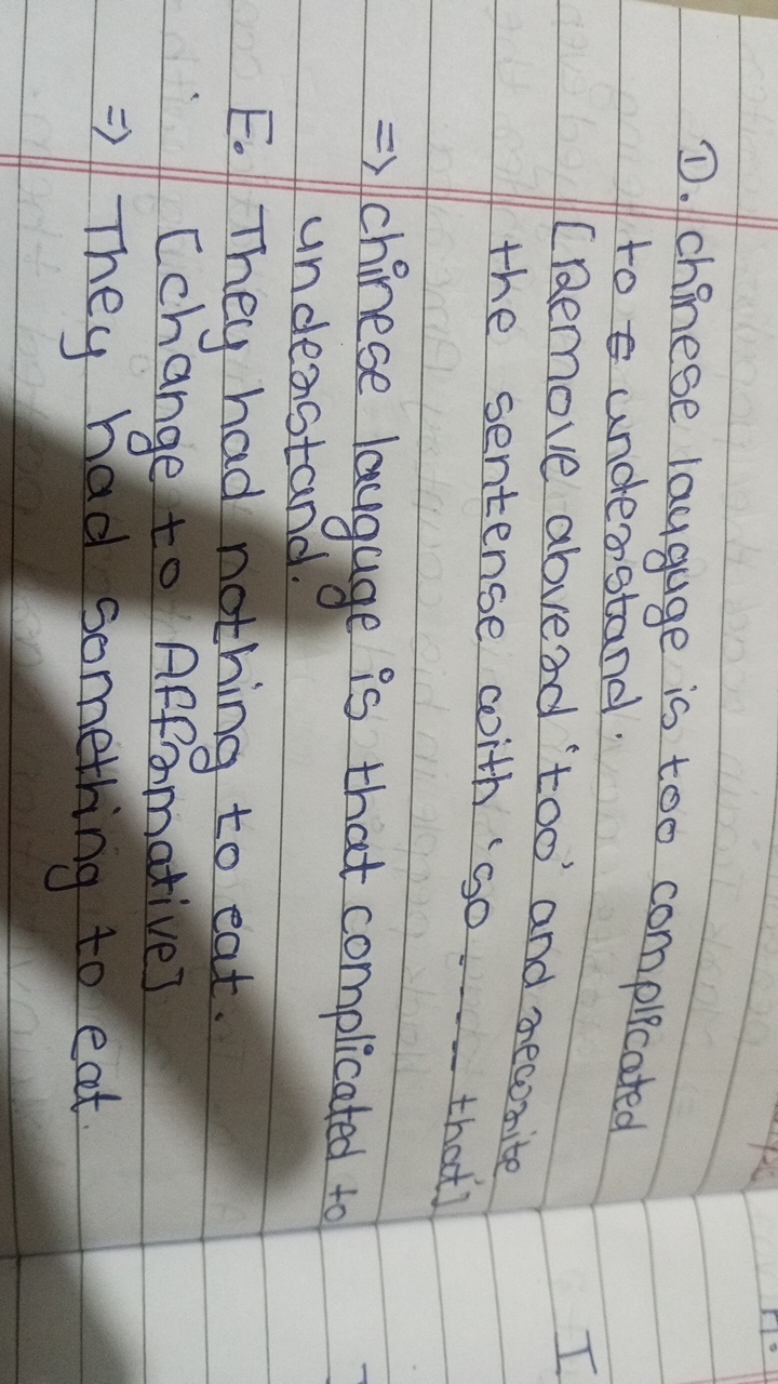 D. chinese lauguge is too complicated
to understand.
[Remove abverd 'too' and recorite
the sentense with 'so ---- that']
=> chinese lauguge is that complicated to
understand.
E. They had nothing to eat.
[change to Affrmative]
=> They had something to eat.
H.
I